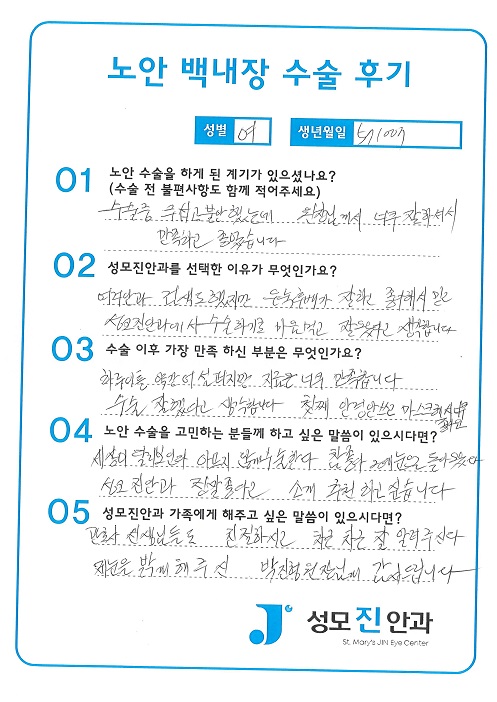 노안 백내장 수술 후기
성별 여 생년월일 571007
01 노안 수술을 하게 된 계기가 있으셨나요?
(수술 전 불편사항도 함께 적어주세요)
수술중 무섭고 불안했는데 원장님께서 너무 잘하셔서
만족하고 좋았습니다
02 성모진안과를 선택한 이유가 무엇인가요?
여러안과 검색도 했지만 잘하고 좋다해서 믿고
성모진안과에서 수술하기로 마음먹고 잘했다고 생각합니다
03 수술 이후 가장 만족 하신 부분은 무엇인가요?
하루이틀 약간 어설펐지만 지금은 너무 만족합니다
수술 잘했다고 생각합니다 첫째 안경안쓰고 마스크써서 너무
좋아요
04 노안 수술을 고민하는 분들께 하고 싶은 말씀이 있으시다면?
세상이 열리는 아프지 않게 수술한다
성모진안과 정말 좋다고 소개 추천 하고 싶습니다
05 성모진안과 가족에게 해주고 싶은 말씀이 있으시다면?
간호사 선생님들도 친절하시고 차근 차근 잘 알려주신다
제눈을 밝게 해 주신 박진형 원장님께 감사드립니다
성모진안과
St. Mary's JIN Eye Center